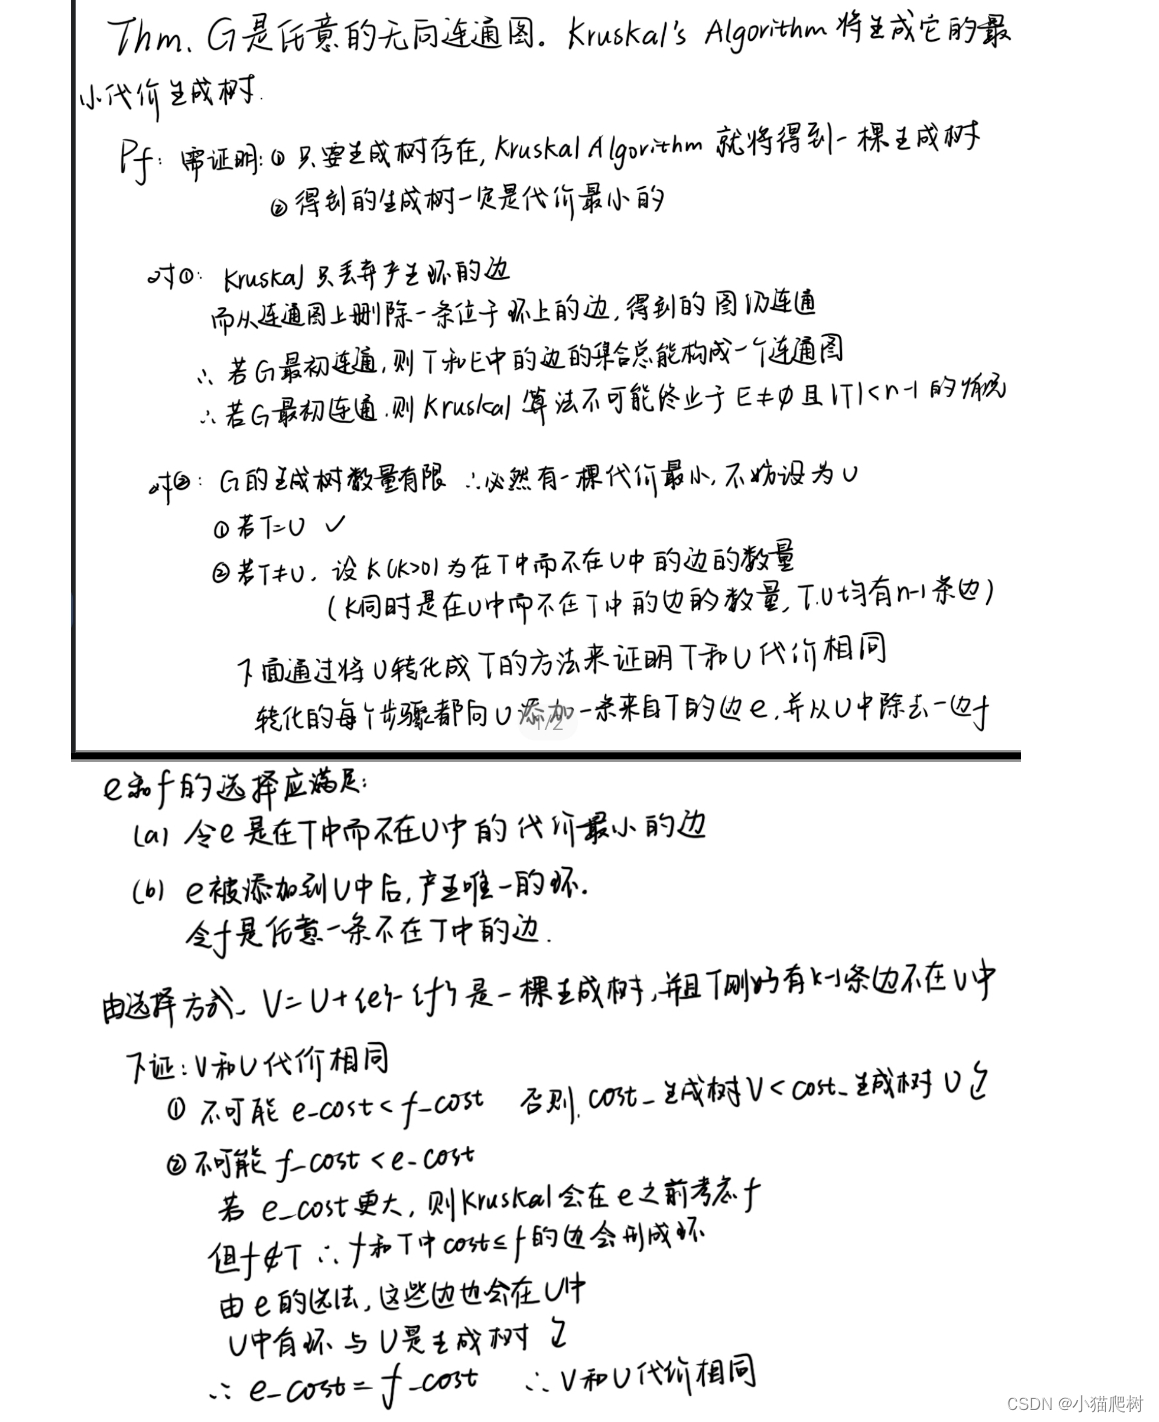 Thm. G是任意的无向连通图. Kruskal's Algorithm将生成它的最
小代价生成树.
Pf: 需证明:① 只要生成树存在, Kruskal Algorithm 就将得到一棵生成树
② 得到的生成树一定是代价最小的
对①: Kruskal 只丢弃产生环的边
而从连通图上删除一条位于环上的边, 得到的图仍连通
∴ 若G最初连通, 则T和E中的边的集合总能构成一个连通图
∴ 若G最初连通. 则Kruskal 算法不可能终止于 E≠∅ 且 |T|<n-1 的情况
对②: G的生成树数量有限 ∴必然有一棵代价最小, 不妨设为U
① 若T=U ✓
② 若T≠U. 设 k(k>0) 为在T中而不在U中的边的数量
(k同时是在U中而不在T中的边的数量, T.U均有n-1条边)
下面通过将U转化成T的方法来证明T和U代价相同
转化的每个步骤都向U添加一条来自T的边e, 并从U中除去一边f
1/2
e和f的选择应满足:
(a) 令e是在T中而不在U中的代价最小的边
(b) e被添加到U中后, 产生唯一的环.
令f是任意一条不在T中的边.
由选择方式, V=U+{e}-{f} 是一棵生成树, 并且T刚好有k-1条边不在V中
下证: V和U代价相同
① 不可能 e_cost<f_cost 否则. cost_生成树V<cost_生成树U
② 不可能 f_cost<e_cost
若 e_cost更大, 则Kruskal会在e之前考虑f
但f∉T ∴ f和T中cost≤f的边会形成环
由e的选法, 这些边也会在U中
U中有环 与U是生成树
∴ e_cost=f_cost ∴ V和U代价相同
CSDN @小猫爬树